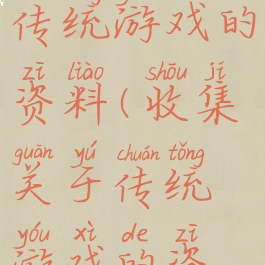 传统游戏的
zī liào shōu jí
资料(收集
guān yú chuán tǒng
关于传统
yóu xì de zī
游戏的资